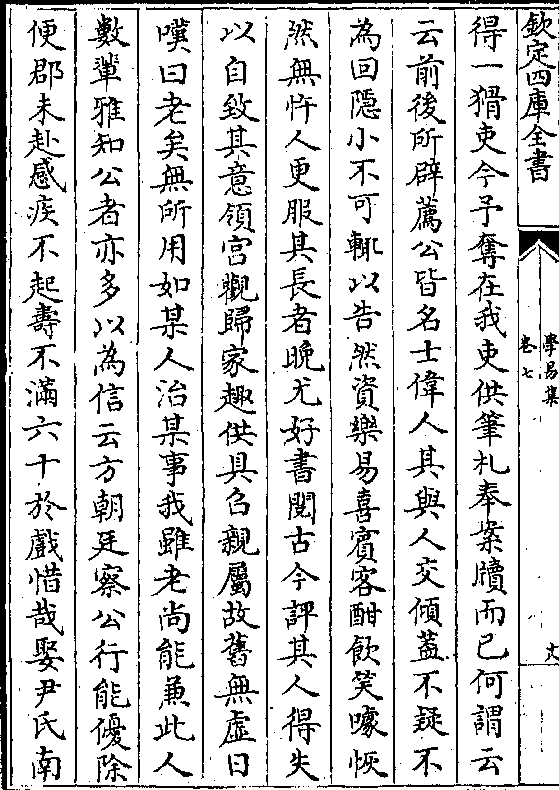 欽定四庫全書
學易集
卷七
得一猾吏今予奪在我吏供筆札奉案牘而已何謂云
云前後所辟薦公皆名士偉人其與人交傾蓋不疑不
為回隱小不可輒以告然資樂易喜賓客酣飲笑噱恢
然無忤人更服其長者晩尤好書閱古今評其人得失
以自致其意領宫觀歸家趣供具召親屬故舊無虚日
嘆曰老矣無所用如某人治某事我雖老尚能兼此人
數輩雅知公者亦多以為信云方朝廷察公行能優除
便郡未赴感疾不起壽不滿六十於戲惜哉娶尹氏南